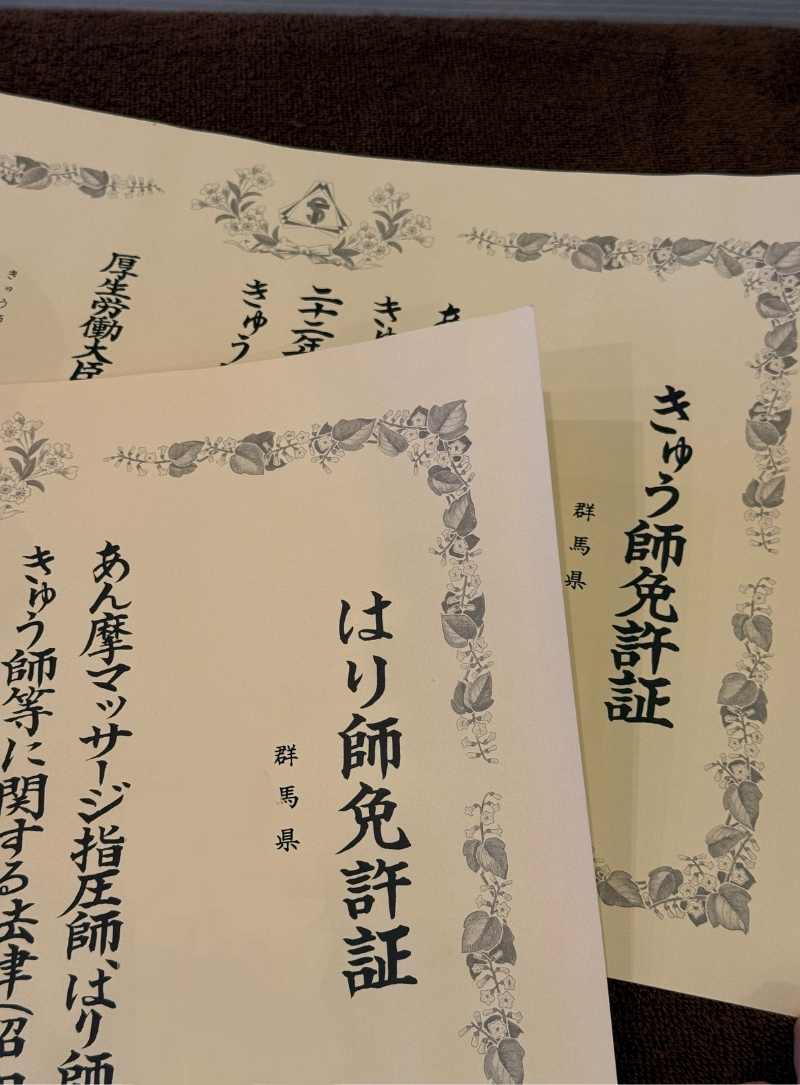 はり師免許証
群馬県
あん摩マッサージ指圧師、はり師
きゅう師等に関する法律(昭
きゅう師免許証
群馬県
あ
きゅ
二十二年
きゅう
厚生労働大臣
きゅう